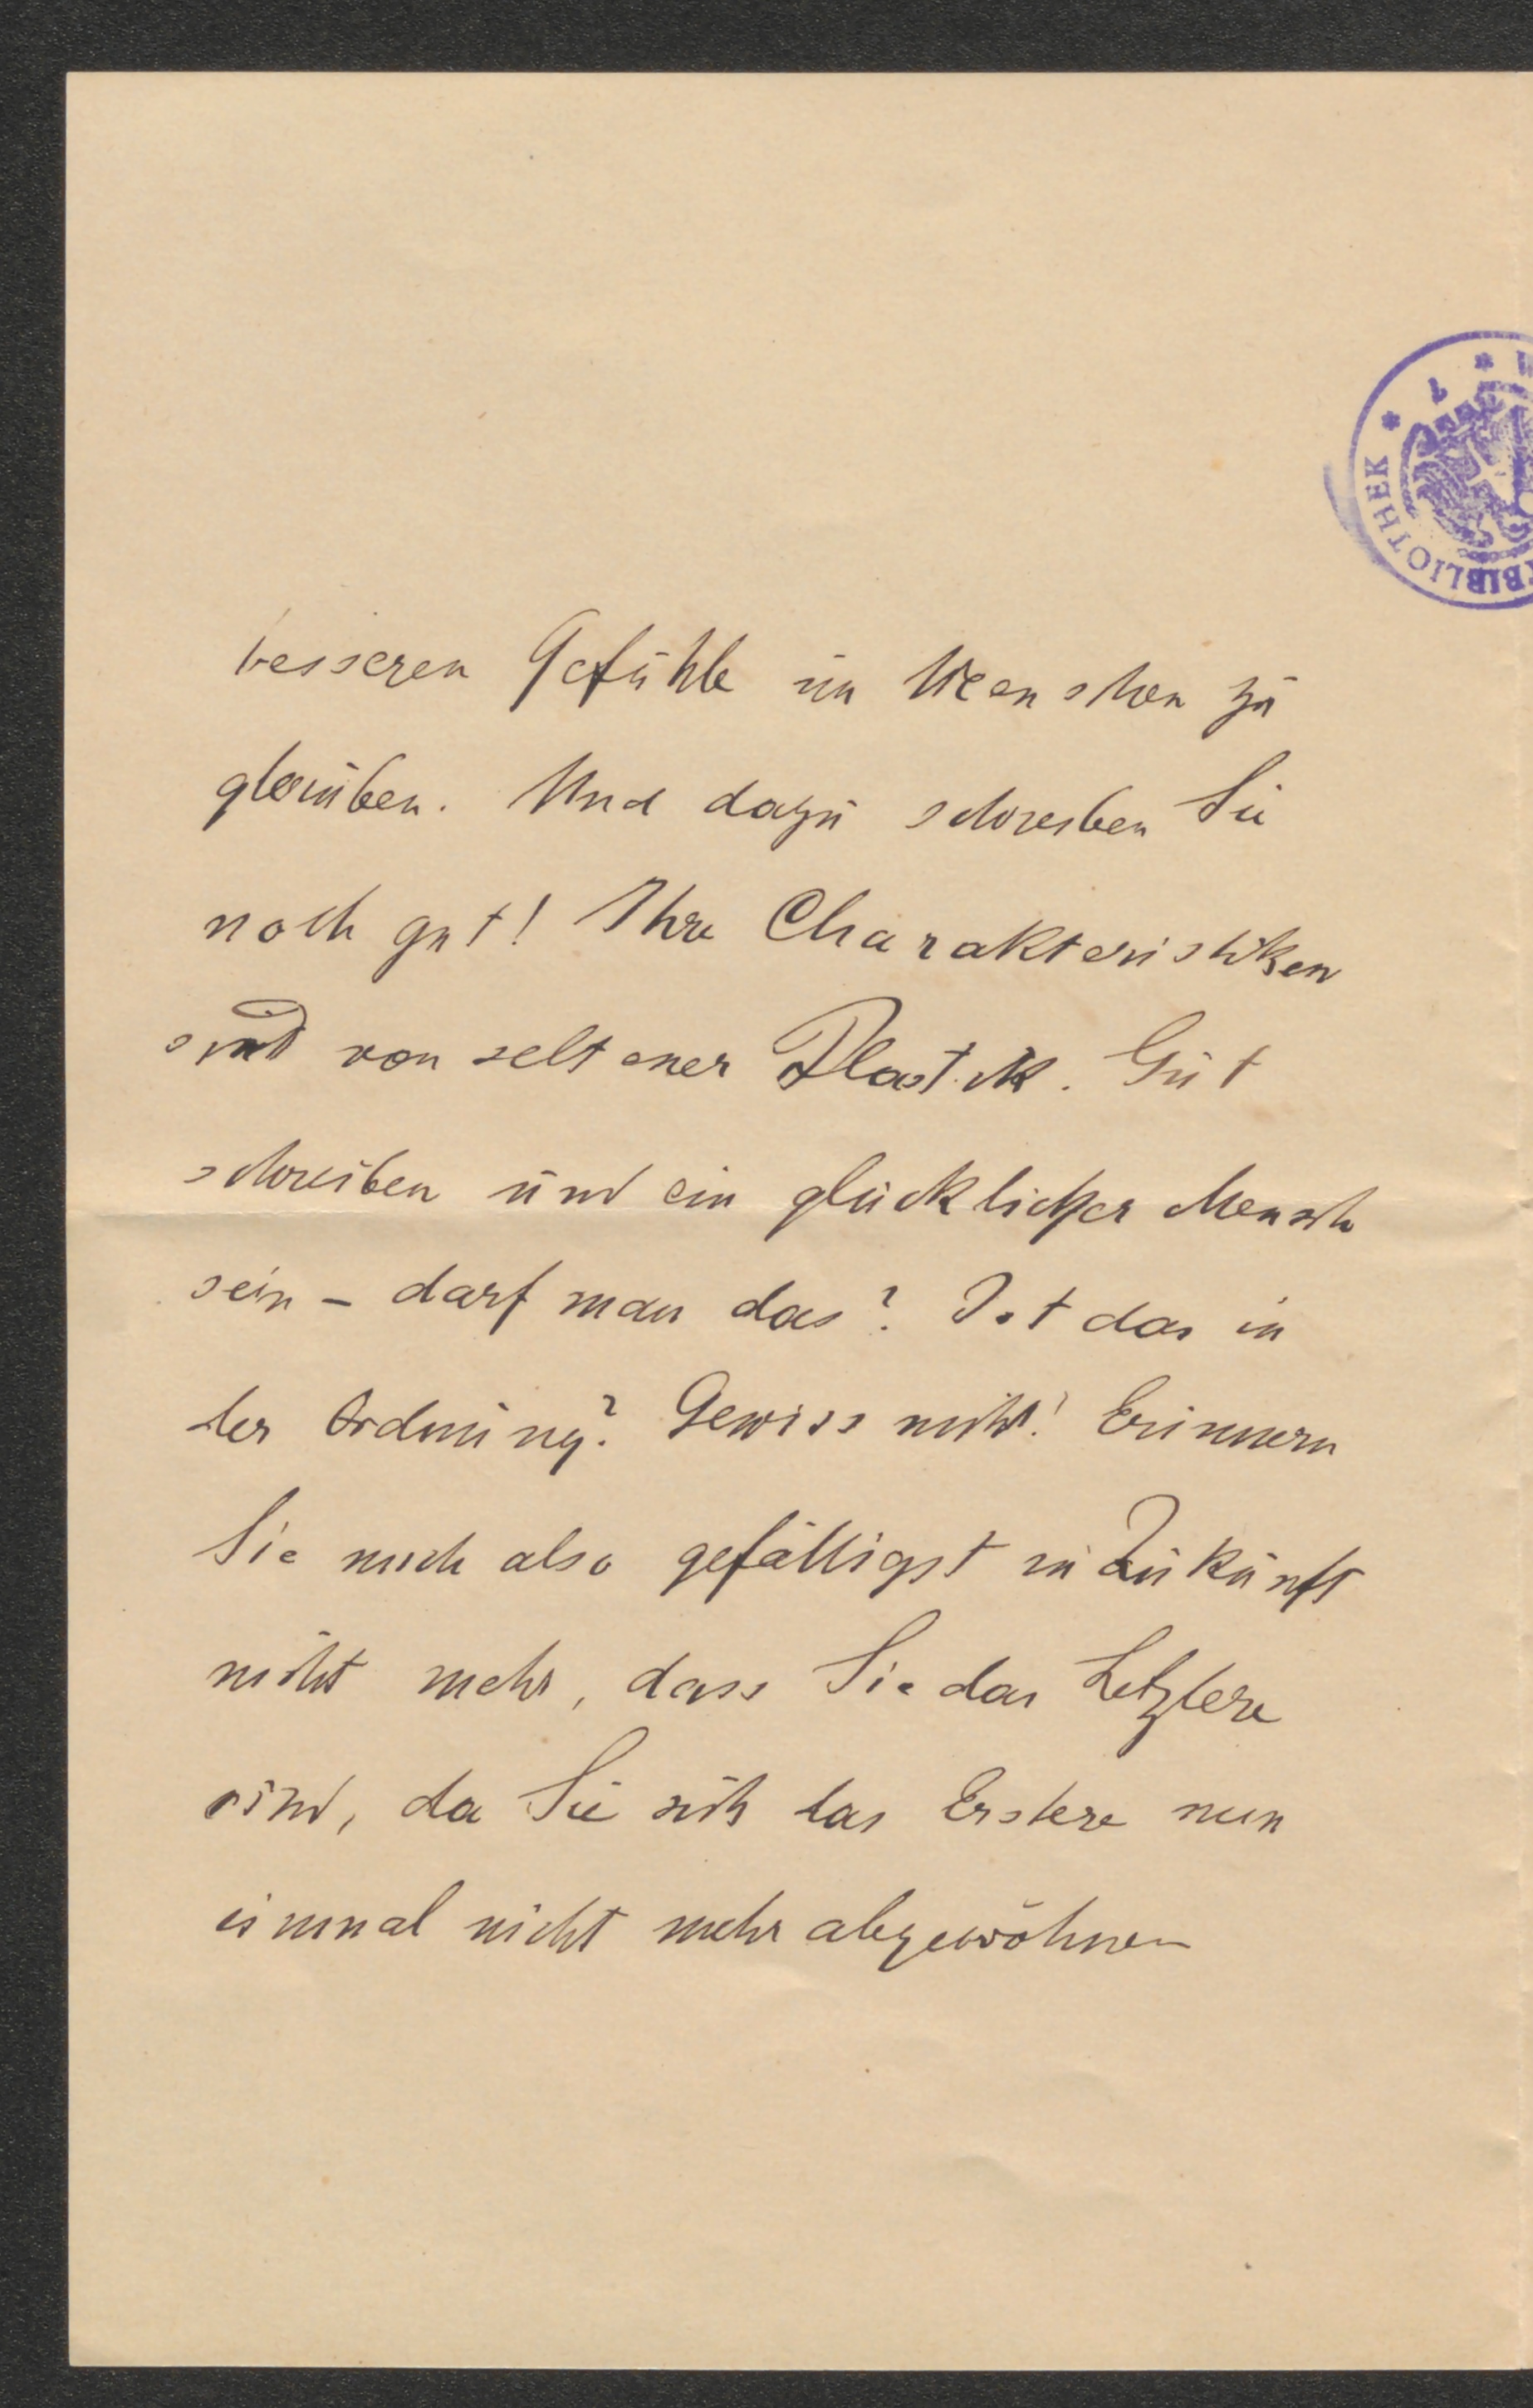 besseren Gefühle im Menschen zu
glauben. Und dazu schreiben Sie
noch gut! Ihre Charakteristiken
sind von seltener Plastik. Gut
schreiben und ein glücklicher Mensch
sein – darf man das? Ist das in
der Ordnung? Gewiss nicht! Erinnern
Sie mich also gefälligst in Zukunft
nicht mehr, dass Sie das Letztere
sind, da Sie sich das Erstere nun
einmal nicht mehr abgewöhnen
BIBLIOTHEK